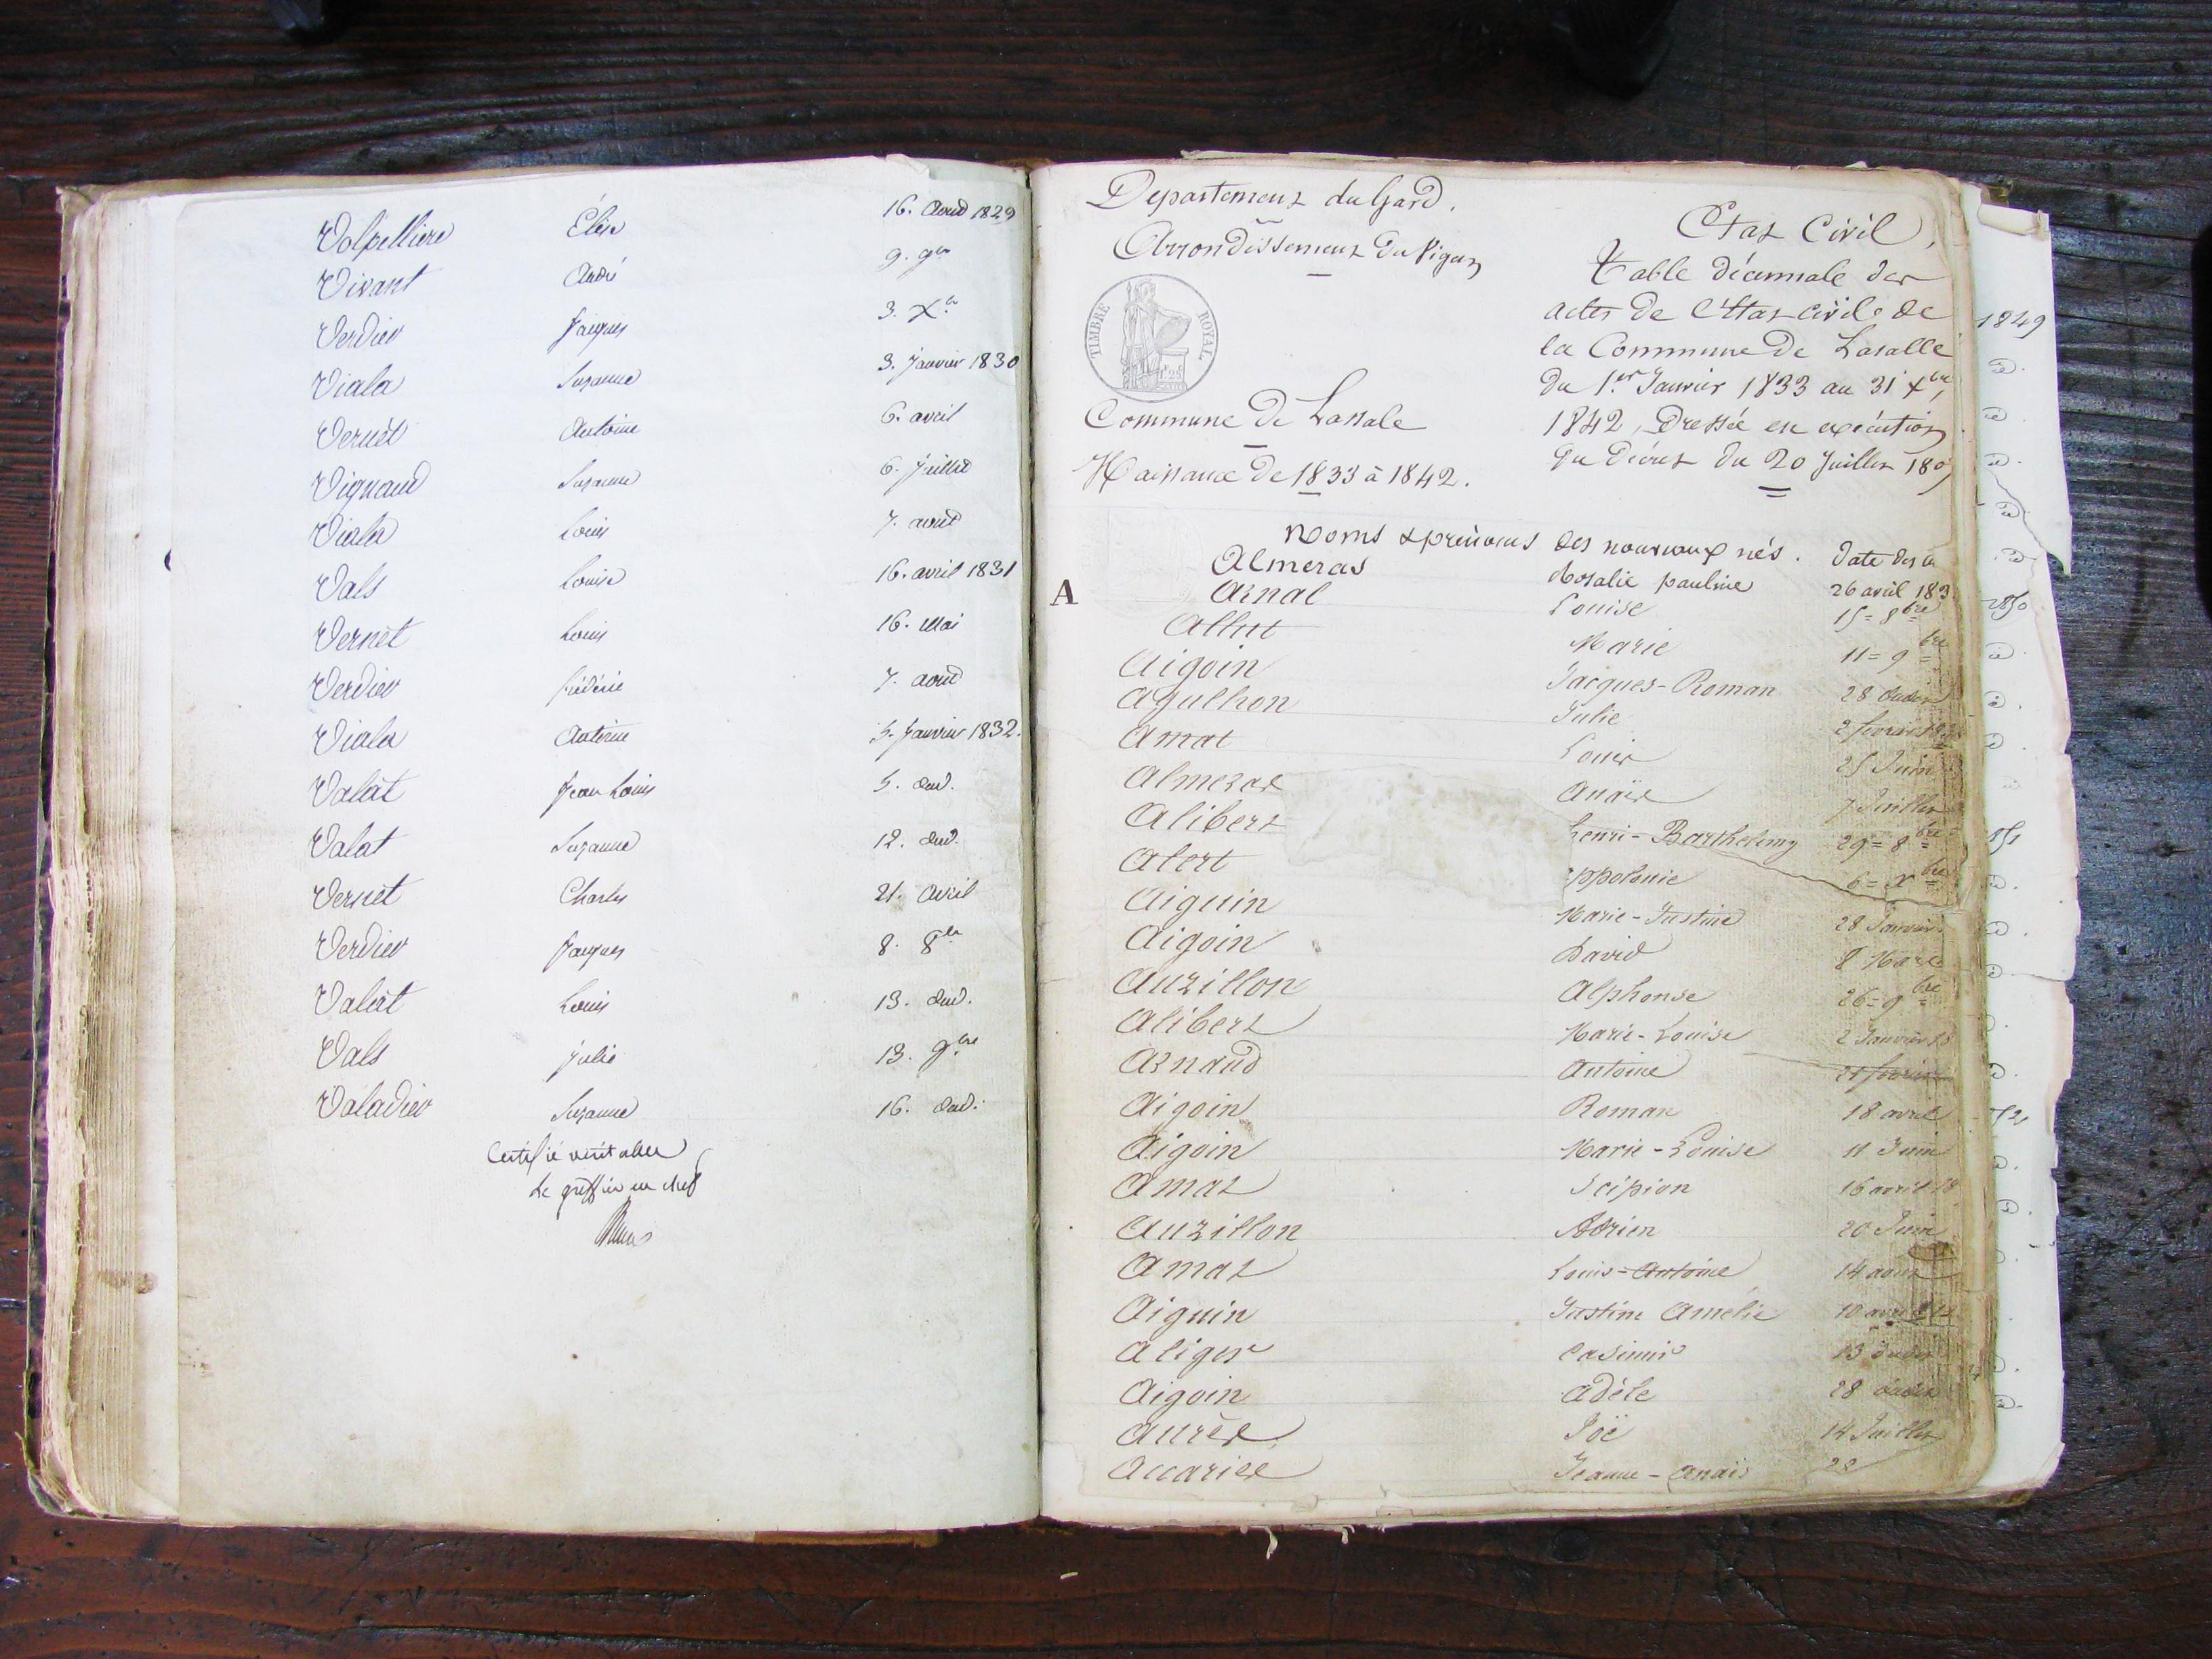 Volpelliere Élise 16. Aout 1829
Vivant André 9. 9bre
Verdier Jacques 3. Xbre
Viala Suzanne 3. Janvier 1830
Vernet Antoine 6. avril
Vignaud Suzanne 6. Juillet
Viala Louis 7. aout
Vals Louise 16. avril 1831
Vernet Louis 16. Mai
Verdier frédéric 7. aout
Viala Antoine 5. Janvier 1832.
Valat Jean Louis 5. dud.
Valat Suzanne 12. dud.
Vernet Charles 21. Avril
Verdier Jacques 8. 8bre
Valat Louis 13. dud.
Vals Julie 13. 9bre
Valadier Suzanne 16. dud.
Certifié véritable
Le greffier en chef
Departement du Gard.
Arrondissement du Vigan
TIMBRE ROYAL
Commune de Lassale
Naissance de 1833 à 1842.
Etat Civil,
Table décennale des
actes de l'Etat civil de
la Commune de Lasalle
du 1er Janvier 1833 au 31 Xbre,
1842, Dressée en exécution
du décret du 20 Juillet 180
Noms & prénoms des nouveaux nés. Date des a
A
Almeras Rosalie pauline 26 avril 183
Arnal Louise 15 = 8bre
Allut Marie 11 = 9bre
Aigoin Jacques-Roman 28 dudit
Agulhon Julie 2 fevrier
Amat Louis 25 Juin
Almeras Anaïs 7 Juillet
Alibert henri-Barthelemy 29 = 8bre
Alert Appolonie 6 = Xbre
Aiguin Marie-Justine 28 Janvier
Aigoin David 8 Mars
Auzillon Alphonse 26 = 9bre
Alibert Marie-Louise 2 Janvier 18
Arnaud Antoine 21 fevrier
Aigoin Roman 18 avril
Aigoin Marie-Louise 11 Juin
Amat Scipion 16 avril 18
Auzillon Adrien 20 Juin
Amat Louis-Antoine 14 aout
Aiguin Justine Amélie 10 avril
Aliger Casimir 13 dudit
Aigoin Adèle 28 dudit
Aurès Zoë 14 Juillet
Accariés Jeanne-Anaïs 28
1849
1850